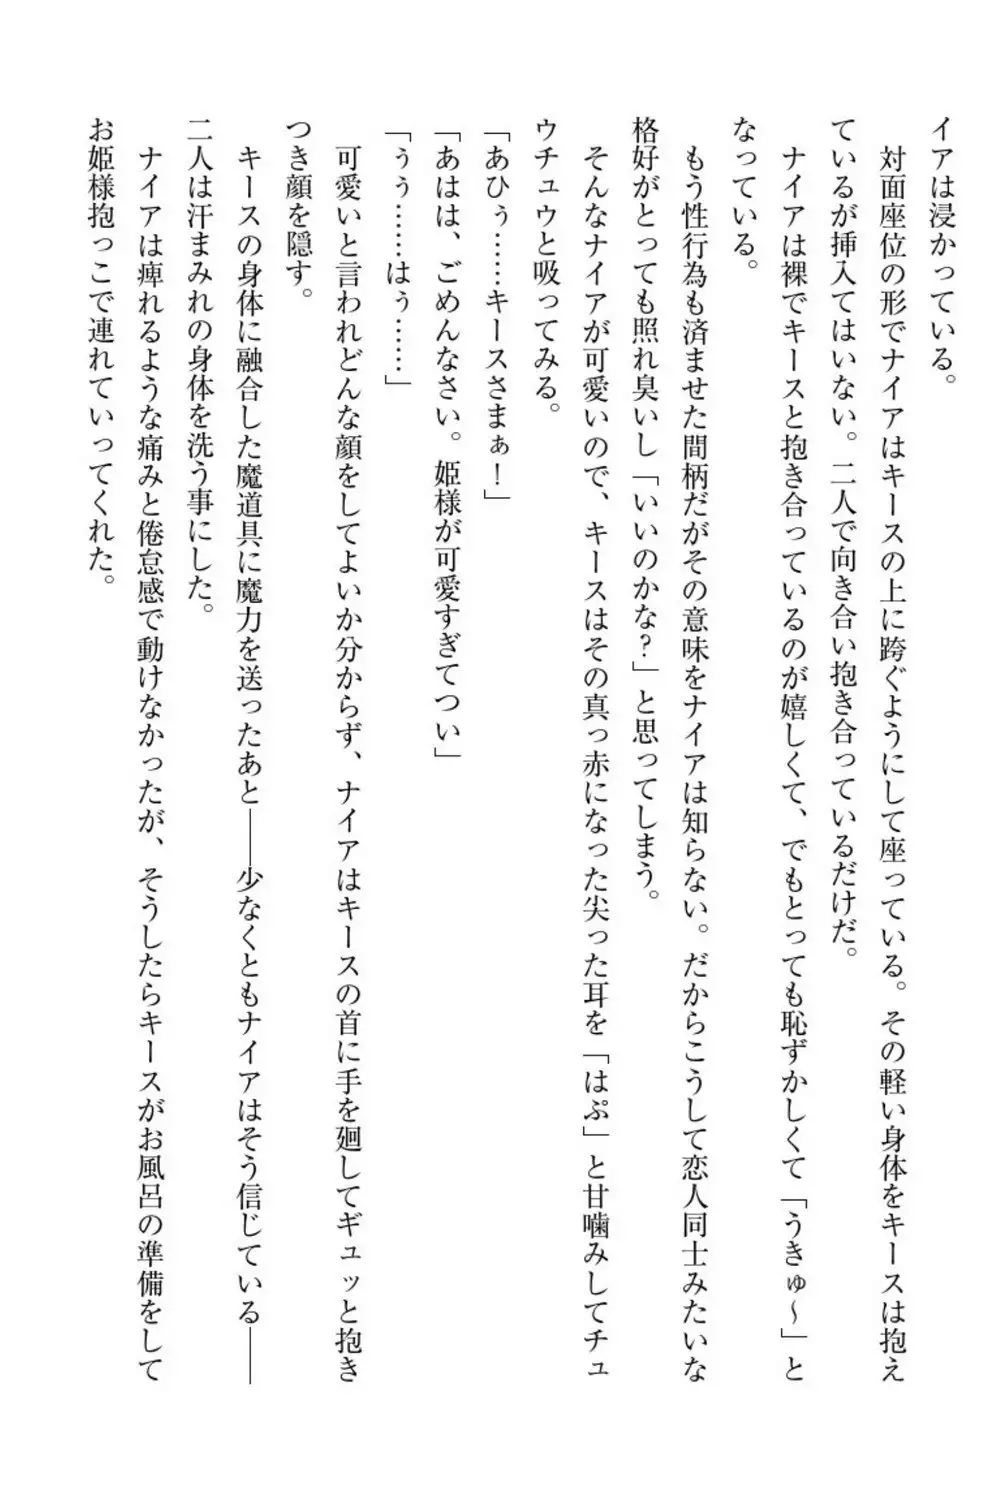 イアは浸かっている。
対面座位の形でナイアはキースの上に跨ぐようにして座っている。その軽い身体をキースは抱え
ているが挿入てはいない。二人で向き合い抱き合っているだけだ。
ナイアは裸でキースと抱き合っているのが嬉しくて、でもとっても恥ずかしくて「うきゅ〜」と
なっている。
もう性行為も済ませた間柄だがその意味をナイアは知らない。だからこうして恋人同士みたいな
格好がとっても照れ臭いし「いいのかな？」と思ってしまう。
そんなナイアが可愛いので、キースはその真っ赤になった尖った耳を「はぷ」と甘噛みしてチュ
ウチュウと吸ってみる。
「あひぅ……キースさまぁ！」
「あはは、ごめんなさい。姫様が可愛すぎてつい」
「ぅぅ……はぅ……」
可愛いと言われどんな顔をしてよいか分からず、ナイアはキースの首に手を廻してギュッと抱き
つき顔を隠す。
キースの身体に融合した魔道具に魔力を送ったあと――少なくともナイアはそう信じている――
二人は汗まみれの身体を洗う事にした。
ナイアは痺れるような痛みと倦怠感で動けなかったが、そうしたらキースがお風呂の準備をして
お姫様抱っこで連れていってくれた。